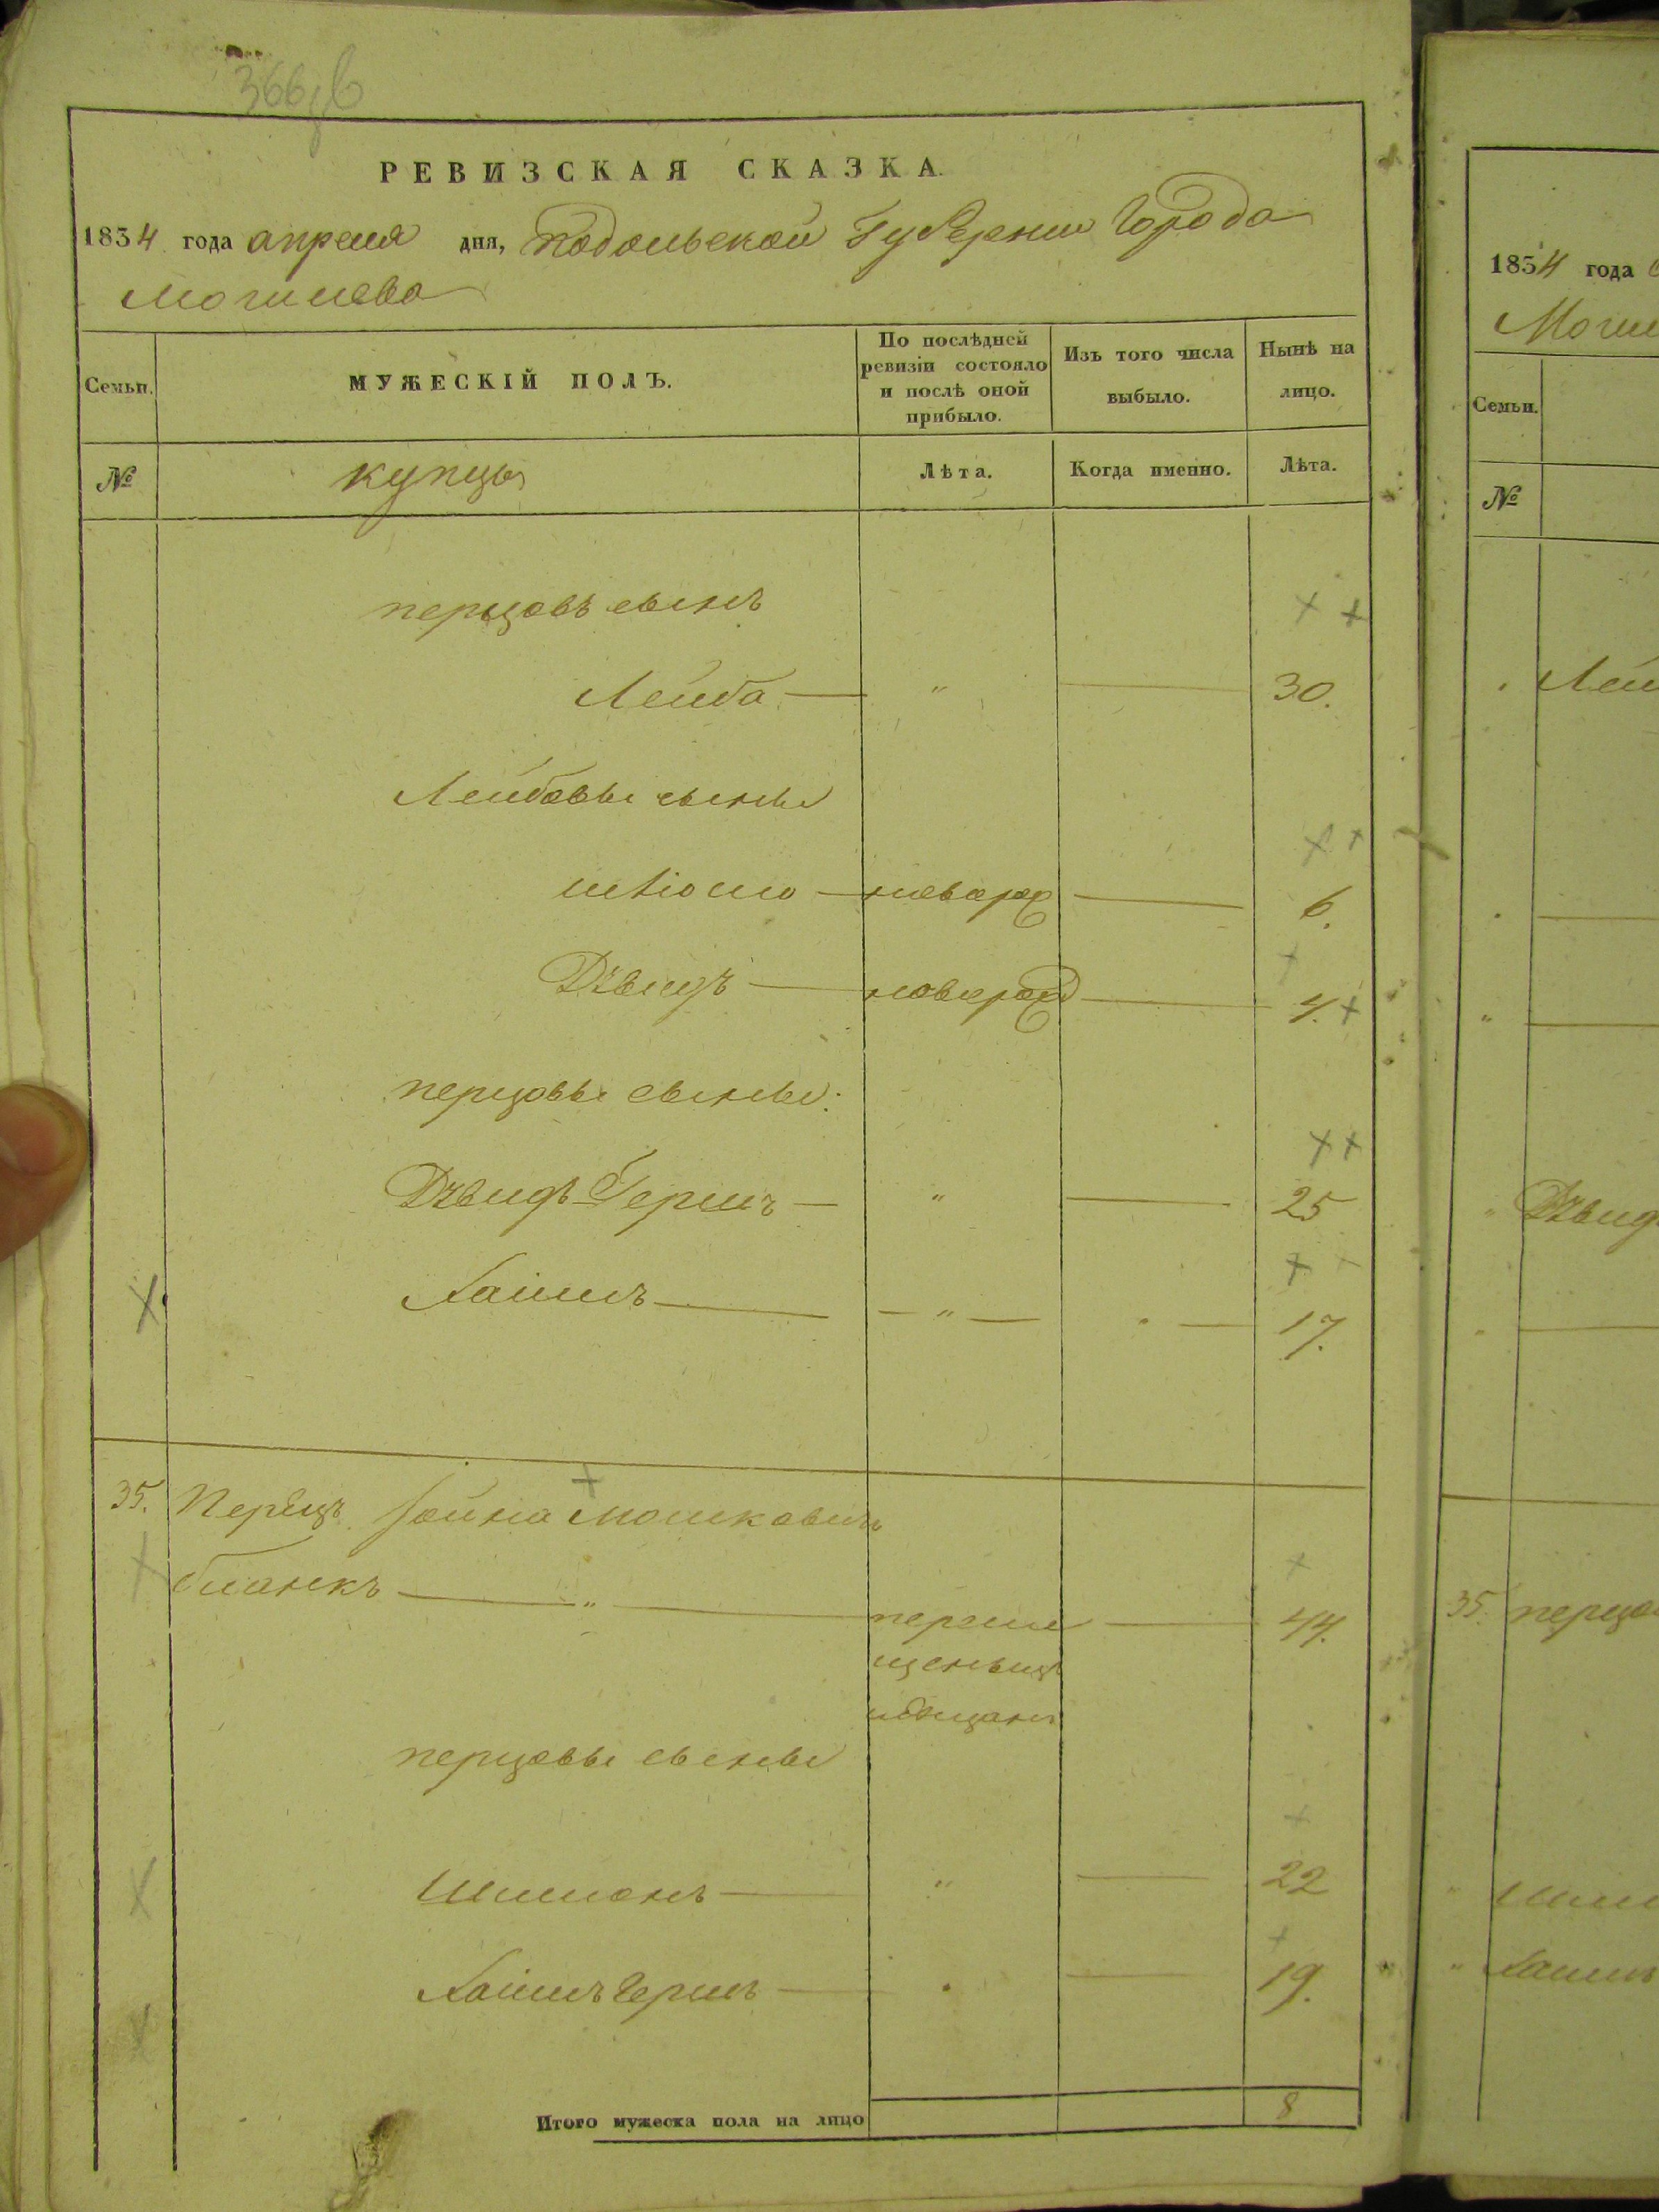 366
РЕВИЗСКАЯ СКАЗКА.
1854 года апреля дня, Подольской Губернии Города
Могилева
Семьи.
МУЖЕСКІЙ ПОЛЪ.
По послѣдней ревизіи состояло и послѣ оной прибыло.
Изъ того числа выбыло.
Нынѣ на лицо.
№
купцы
Лѣта.
Когда именно.
Лѣта.
перцовъ сынъ
Лейба — " — 30.
Лейбовы сыны
новорож — 6.
Дувидъ — новорожд — 4.
перцовы сыны:
Дувидъ Гершъ — " — 25
Хаимъ — " — 17.
35. Перецъ Іойна Мошковичъ
бланкъ — " — 44.
перцовы сыны
Шимонъ — " — 22
Хаимъ Гершъ — 19.
Итого мужеска пола на лицо 8
1854 года
Моги
Семьи.
№
Лей
Дувид
35. перцо
Шим
Хаимъ